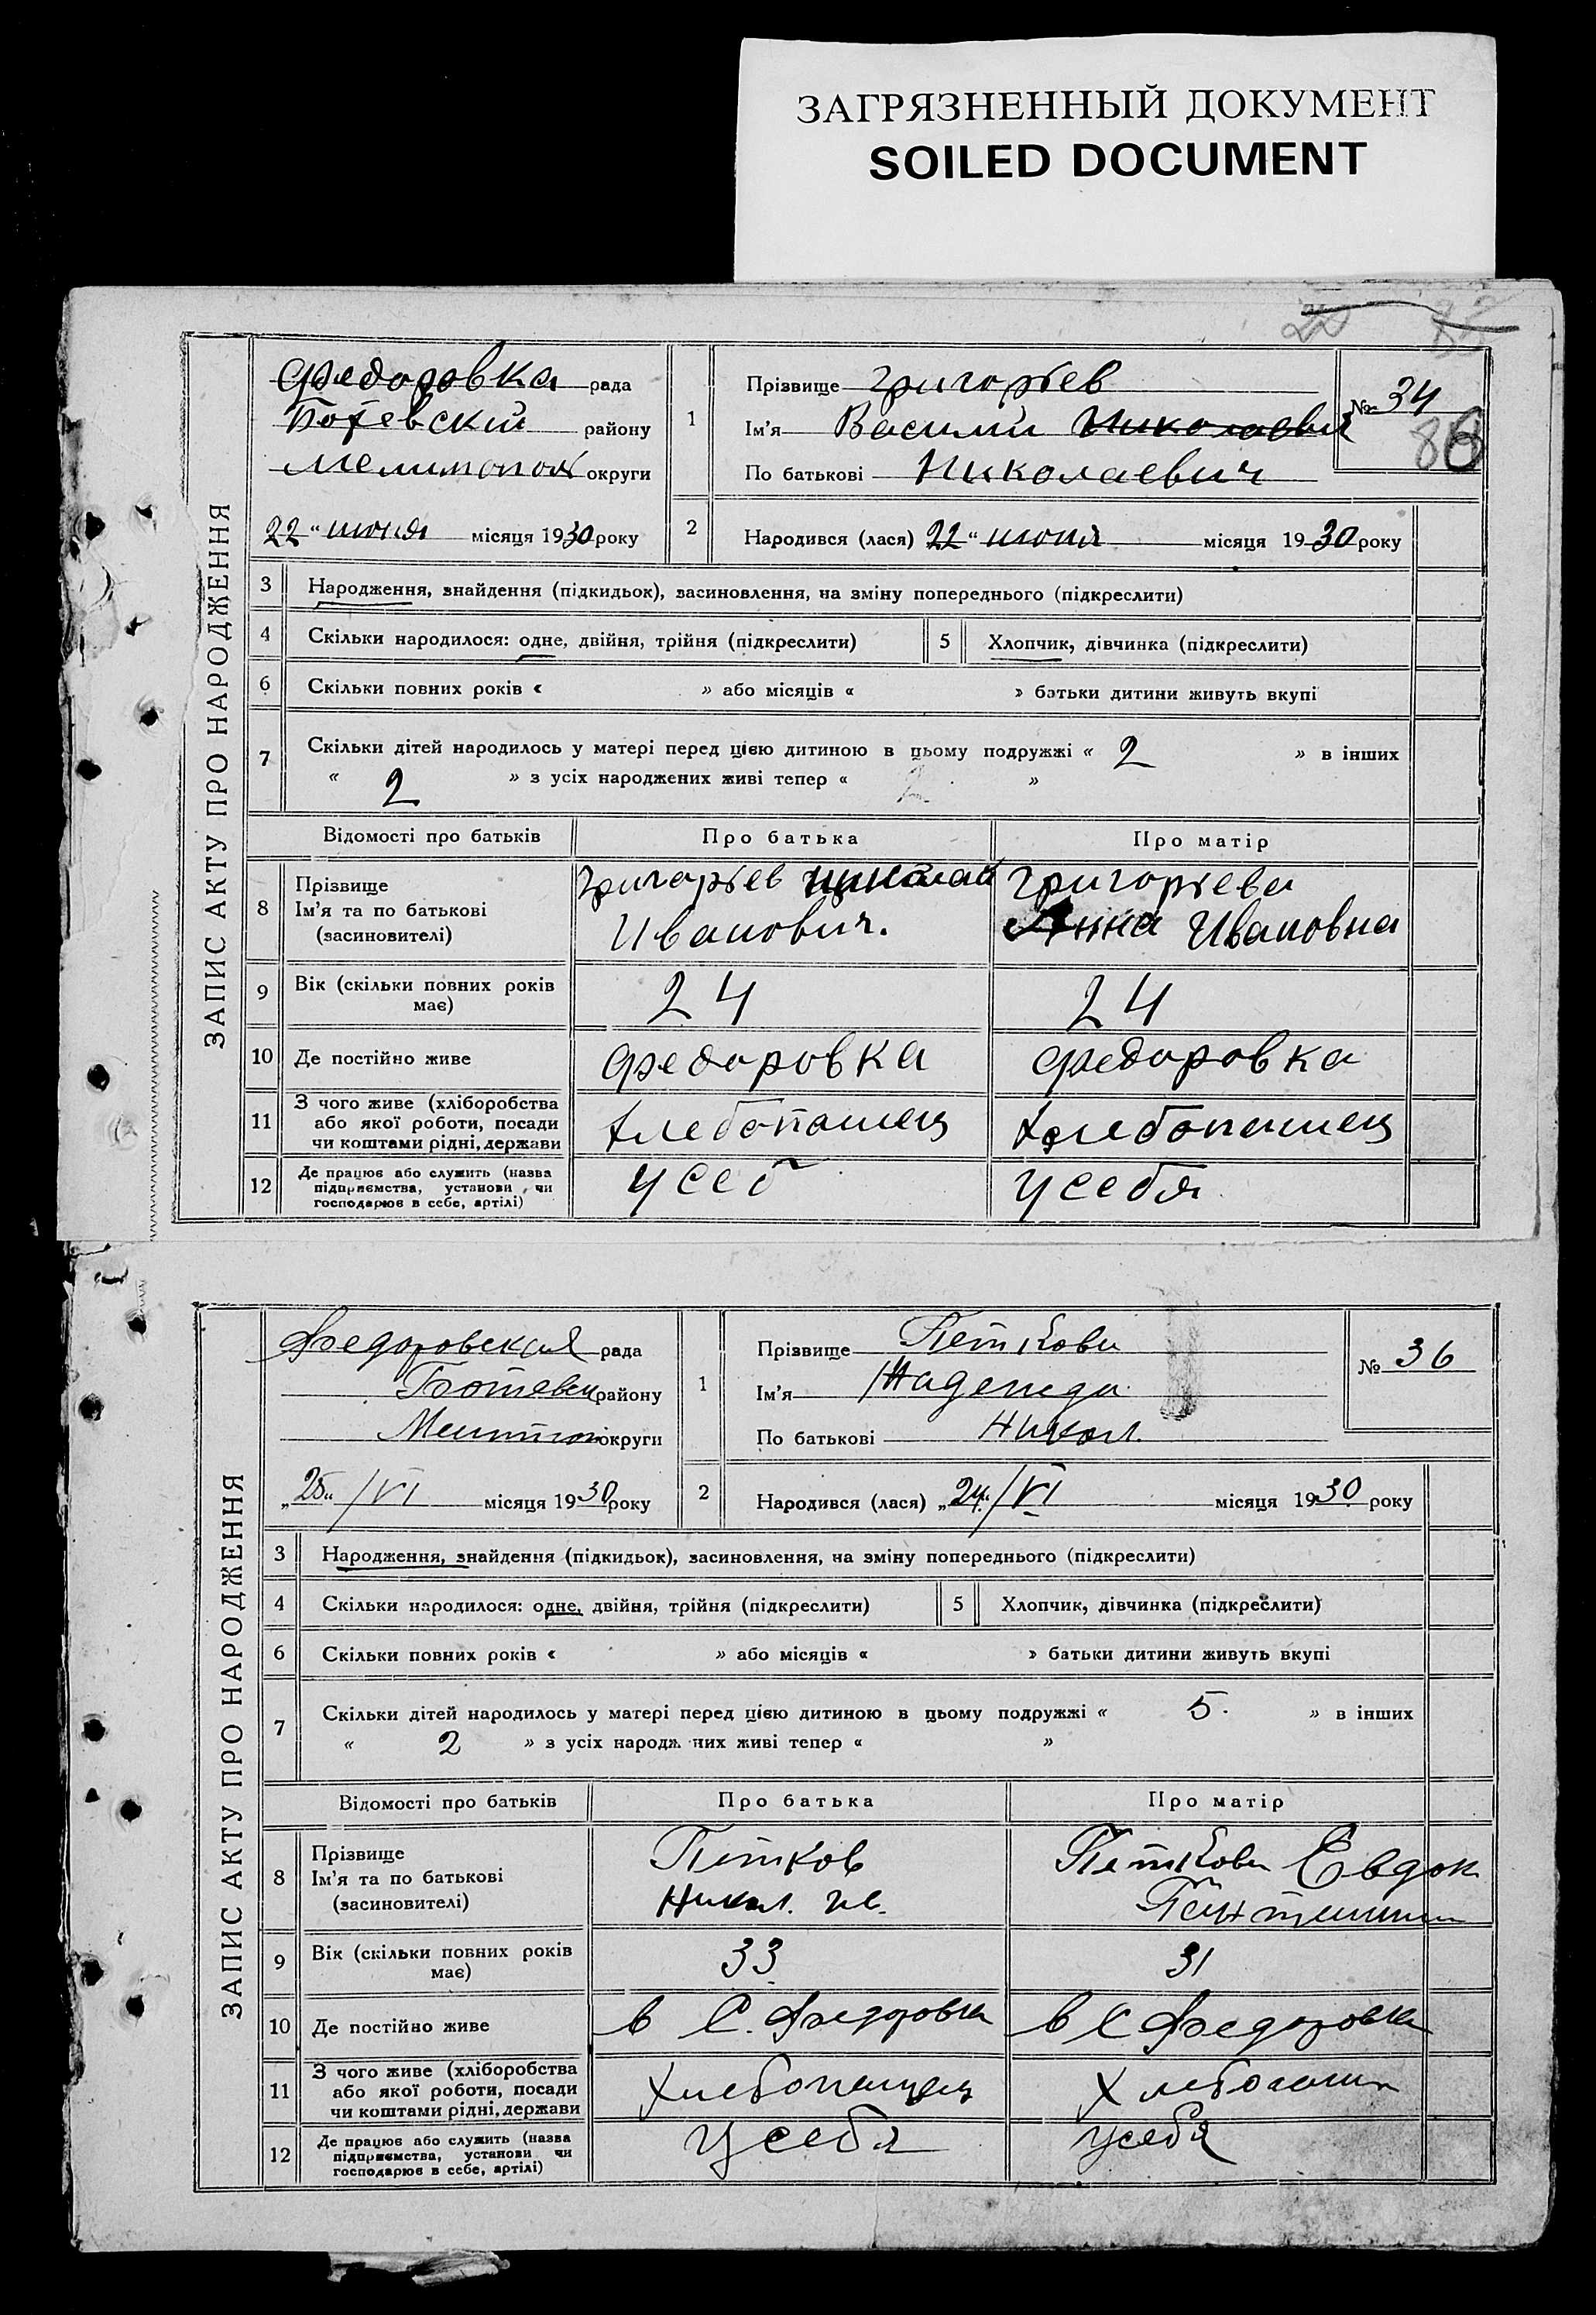 ЗАГРЯЗНЕННЫЙ ДОКУМЕНТ
SOILED DOCUMENT
ЗАПИС АКТУ ПРО НАРОДЖЕННЯ
Федоровка рада
Ботевский району
Мелитопол округи
22 " июня місяця 1930 року
1
Прізвище Григорьев
Ім'я Василий Николаевич
По батькові Николаевич
№ 34
86
2
Народився (лася) 22 " июня місяця 1930 року
3 Народження, знайдення (підкидьок), засиновлення, на зміну попереднього (підкреслити)
4 Скільки народилося: одне, двійня, трійня (підкреслити) 5 Хлопчик, дівчинка (підкреслити)
6 Скільки повних років « » або місяців « » батьки дитини живуть вкупі
7 Скільки дітей народилось у матері перед цією дитиною в цьому подружжі « 2 » в інших
« 2 » з усіх народжених живі тепер « 2 »
Відомості про батьків Про батька Про матір
8 Прізвище
Ім'я та по батькові
(засиновителі)
Григорьев Николай
Иванович.
Григорьева
Анна Ивановна
9 Вік (скільки повних років
має)
24 24
10 Де постійно живе Федоровка Федоровка
11 З чого живе (хліборобства
або якої роботи, посади
чи коштами рідні, держави
Хлебопашец Хлебопашец
12 Де працює або служить (назва
підприємства, установи чи
господарює в себе, артілі)
усеб усебя
ЗАПИС АКТУ ПРО НАРОДЖЕННЯ
Федоровская рада
Ботевск району
Мелитоп округи
„25" /VI місяця 1930 року
1
Прізвище Петкова
Ім'я Надежда
По батькові Никол.
№ 36
2
Народився (лася) „24" /VI місяця 1930 року
3 Народження, знайдення (підкидьок), засиновлення, на зміну попереднього (підкреслити)
4 Скільки народилося: одне, двійня, трійня (підкреслити) 5 Хлопчик, дівчинка (підкреслити)
6 Скільки повних років « » або місяців « » батьки дитини живуть вкупі
7 Скільки дітей народилось у матері перед цією дитиною в цьому подружжі « 5. » в інших
« 2 » з усіх народжених живі тепер « »
Відомості про батьків Про батька Про матір
8 Прізвище
Ім'я та по батькові
(засиновителі)
Петков
Никол. Ив.
Петкова Евдок
9 Вік (скільки повних років
має)
33 31
10 Де постійно живе в С. Федоровка в С Федоровка
11 З чого живе (хліборобства
або якої роботи, посади
чи коштами рідні, держави
Хлебопашец Хлебопаш
12 Де працює або служить (назва
підприємства, установи чи
господарює в себе, артілі)
усебя усебя